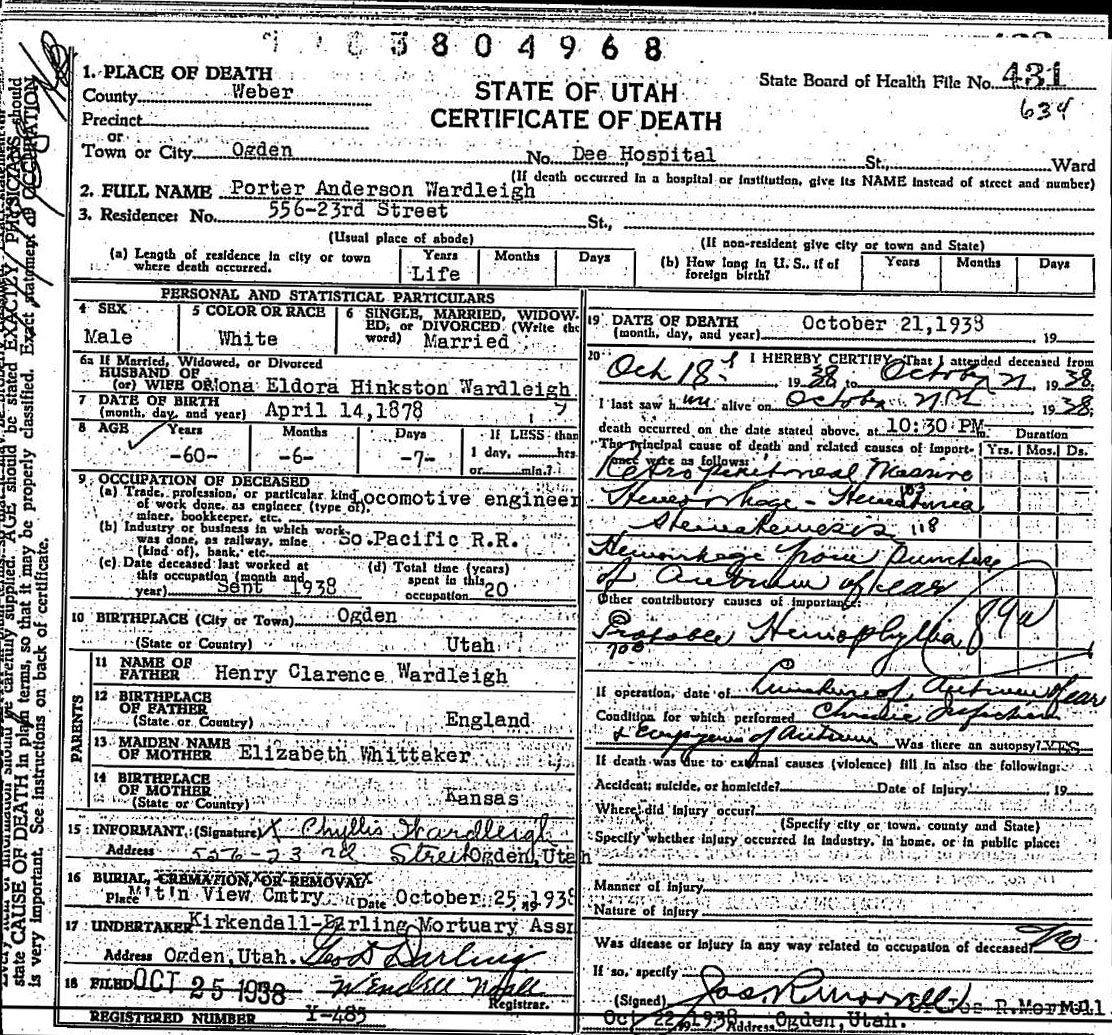 3804968
1. PLACE OF DEATH
County Weber
Precinct
or
Town or City Ogden
STATE OF UTAH
CERTIFICATE OF DEATH
State Board of Health File No. 431
634
No. Dee Hospital St., Ward
(If death occurred in a hospital or institution, give its NAME instead of street and number)
2. FULL NAME Porter Anderson Wardleigh
3. Residence: No. 556-23rd Street St.,
(Usual place of abode) (If non-resident give city or town and State)
(a) Length of residence in city or town where death occurred. Years Life Months Days
(b) How long in U. S., if of foreign birth? Years Months Days
PERSONAL AND STATISTICAL PARTICULARS
4 SEX Male
5 COLOR OR RACE White
6 SINGLE, MARRIED, WIDOWED, or DIVORCED (Write the word) Married
6a If Married, Widowed, or Divorced
HUSBAND OF
(or) WIFE OF Mona Eldora Hinkston Wardleigh
7 DATE OF BIRTH
(month, day, and year) April 14,1878
8 AGE Years -60- Months -6- Days -7- If LESS than 1 day, hrs or min.?
9 OCCUPATION OF DECEASED
(a) Trade, profession, or particular kind of work done, as engineer (type of), miner, bookkeeper, etc. Locomotive engineer
(b) Industry or business in which work was done, as railway, mine (kind of), bank, etc. So.Pacific R.R.
(c) Date deceased last worked at this occupation (month and year) Sept 1938
(d) Total time (years) spent in this occupation 20
10 BIRTHPLACE (City or Town) Ogden
(State or Country) Utah
PARENTS
11 NAME OF FATHER Henry Clarence Wardleigh
12 BIRTHPLACE OF FATHER
(State or Country) England
13 MAIDEN NAME OF MOTHER Elizabeth Whittaker
14 BIRTHPLACE OF MOTHER
(State or Country) Kansas
15 INFORMANT (Signature) X Phyllis Wardleigh
Address 556-23rd Street Ogden, Utah
16 BURIAL, CREMATION, OR REMOVAL
Place Mt'n View Cmtry Date October 25, 1938
17 UNDERTAKER Kirkendall-Darling Mortuary Assn
Address Ogden, Utah. Geo D Darling
18 FILED OCT 25 1938 Wendell Noall
Registrar.
REGISTERED NUMBER Y-485
19 DATE OF DEATH
(month, day, and year) October 21,1938 19
20 I HEREBY CERTIFY, That I attended deceased from
Oct 18 1938 to October 21 1938
I last saw him alive on October 21st 1938;
death occurred on the date stated above, at 10:30 PM.
Duration
The principal cause of death and related causes of importance were as follows: Yrs. Mos. Ds.
Retroperitoneal Massive
Hemorrhage - Hematuria
Hematemesis 118
Hemorrhage from puncture
of Antrum of ear
Other contributory causes of importance:
Probable Hemophyllia
If operation, date of Puncture of Antrum of ear
Condition for which performed Chronic Infection
& Empyema of Antrum Was there an autopsy? YES
If death was due to external causes (violence) fill in also the following:
Accident, suicide, or homicide? Date of injury 19
Where did injury occur?
(Specify city or town, county and State)
Specify whether injury occurred in industry, in home, or in public place:
Manner of injury
Nature of injury
Was disease or injury in any way related to occupation of deceased? No
If so, specify
(Signed) Jos R Morrell
Jos R. Morrell
Oct 22, 1938 Address Ogden, Utah.
state CAUSE OF DEATH in plain terms, so that it may be properly classified. Exact statement of OCCUPATION
is very important. See instructions on back of certificate.